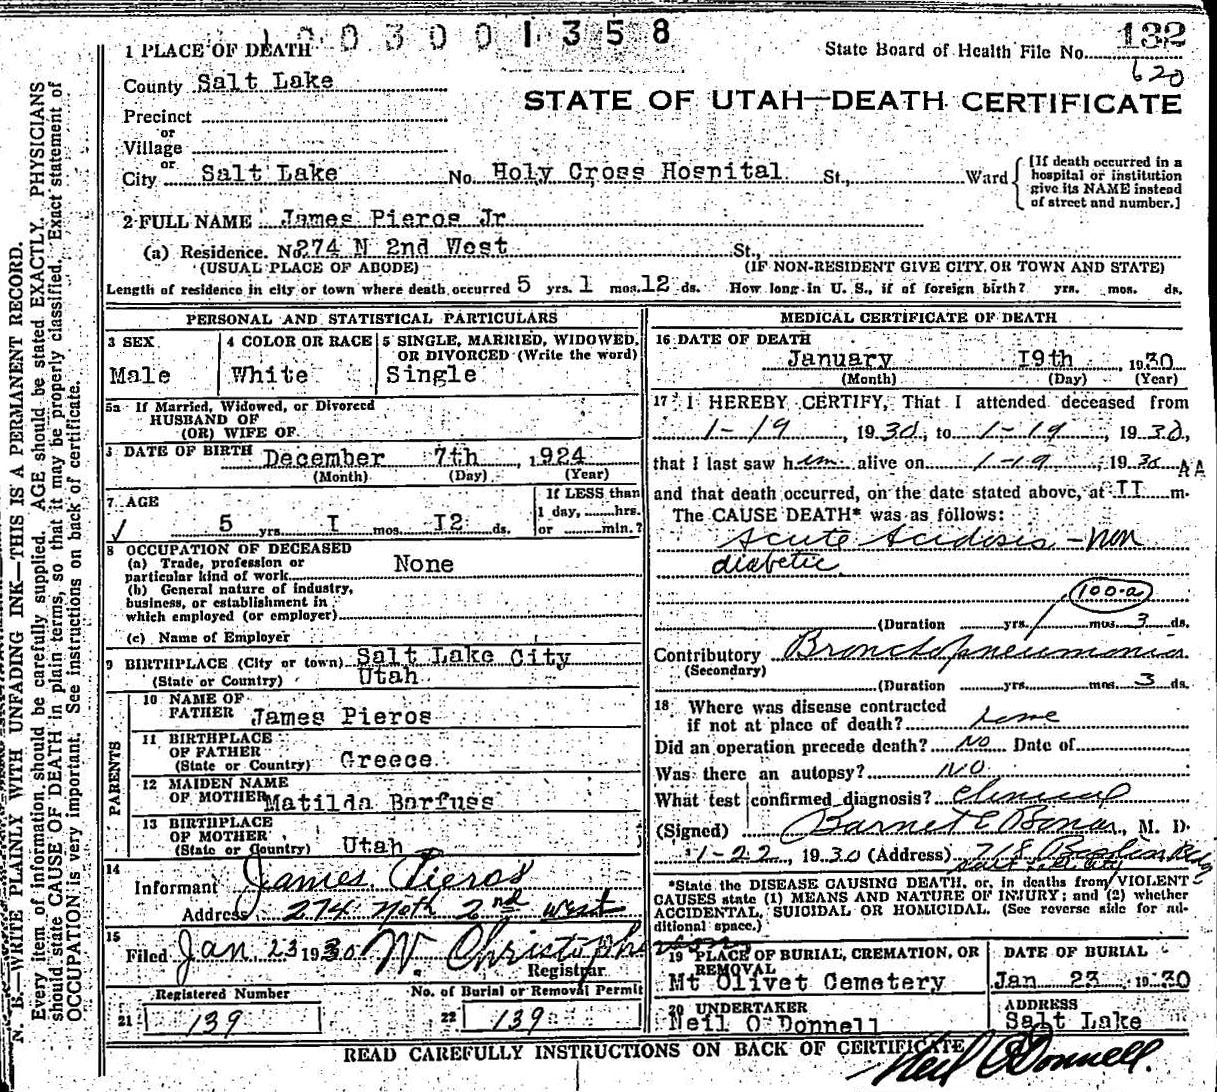 1003001358
1 PLACE OF DEATH
State Board of Health File No. 132
620
County Salt Lake
STATE OF UTAH—DEATH CERTIFICATE
Precinct
or
Village
or
City Salt Lake No. Holy Cross Hospital St., Ward
[If death occurred in a
hospital or institution
give its NAME instead
of street and number.]
2 FULL NAME James Pieros Jr
(a) Residence. No. 274 N 2nd West St.,
(USUAL PLACE OF ABODE) (IF NON-RESIDENT GIVE CITY OR TOWN AND STATE)
Length of residence in city or town where death occurred 5 yrs. 1 mos. 12 ds. How long in U. S., if of foreign birth? yrs. mos. ds.
PERSONAL AND STATISTICAL PARTICULARS
3 SEX
Male
4 COLOR OR RACE
White
5 SINGLE, MARRIED, WIDOWED,
OR DIVORCED (Write the word)
Single
5a If Married, Widowed, or Divorced
HUSBAND OF
(OR) WIFE OF
DATE OF BIRTH December 7th, 1924
(Month) (Day) (Year)
7 AGE
5 yrs. I mos. I2 ds.
If LESS than
1 day, hrs.
or min.?
8 OCCUPATION OF DECEASED
(a) Trade, profession or
particular kind of work None
(b) General nature of industry,
business, or establishment in
which employed (or employer)
(c) Name of Employer
9 BIRTHPLACE (City or town) Salt Lake City
(State or Country) Utah
PARENTS
10 NAME OF
FATHER James Pieros
11 BIRTHPLACE
OF FATHER
(State or Country) Greece
12 MAIDEN NAME
OF MOTHER Matilda Barfuss
13 BIRTHPLACE
OF MOTHER
(State or Country) Utah
14
Informant James Pieros
Address 274 Noth 2nd west
15
Filed Jan 23 1930 W. Christopherson
Registrar
Registered Number
21 139
No. of Burial or Removal Permit
22 139
MEDICAL CERTIFICATE OF DEATH
16 DATE OF DEATH
January I9th, 1930
(Month) (Day) (Year)
17 I HEREBY CERTIFY, That I attended deceased from
1-19, 1930, to 1-19, 1930,
that I last saw him alive on 1-19, 1930
AA
and that death occurred, on the date stated above, at II m.
The CAUSE DEATH* was as follows:
Acute Acidosis - non
diabetic
100-a
(Duration yrs. mos. 3 ds.
Contributory Bronchopneumonia
(Secondary)
(Duration yrs. mos. 3 ds.
18 Where was disease contracted
if not at place of death? home
Did an operation precede death? No Date of
Was there an autopsy? No
What test confirmed diagnosis? Clinical
(Signed) Barnet E Bonar, M. D.
1-22, 1930 (Address) 718 Boston Bldg
Salt Lake City
*State the DISEASE CAUSING DEATH, or, in deaths from VIOLENT
CAUSES state (1) MEANS AND NATURE OF INJURY; and (2) whether
ACCIDENTAL, SUICIDAL OR HOMICIDAL. (See reverse side for ad-
ditional space.)
19 PLACE OF BURIAL, CREMATION, OR
REMOVAL
Mt Olivet Cemetery
DATE OF BURIAL
Jan 23 1930
20 UNDERTAKER
Neil O'Donnell
ADDRESS
Salt Lake
READ CAREFULLY INSTRUCTIONS ON BACK OF CERTIFICATE
Neil O'Donnell.
N. B.—WRITE PLAINLY WITH UNFADING INK—THIS IS A PERMANENT RECORD.
Every item of information should be carefully supplied. AGE should be stated EXACTLY. PHYSICIANS
should state CAUSE OF DEATH in plain terms, so that it may be properly classified. Exact statement of
OCCUPATION is very important. See instructions on back of certificate.